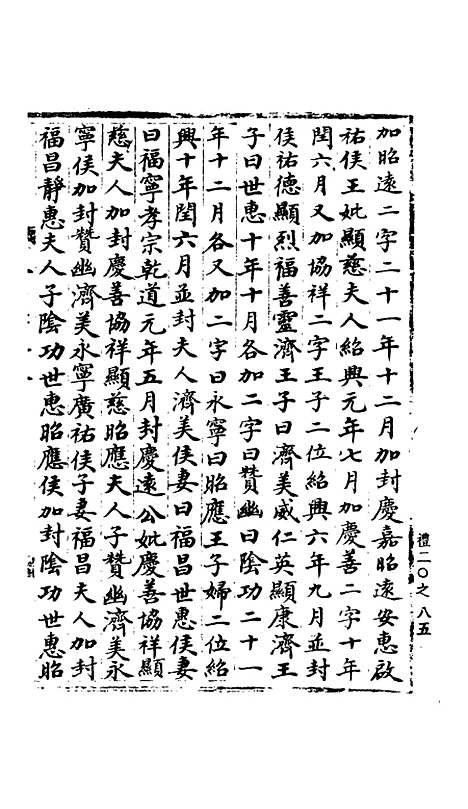 加昭遠二字二十一年十二月加封慶嘉昭遠安惠啟
祐侯王妣顯慈夫人紹興元年七月加慶善二字十年
閏六月又加協祥二字王子二位紹興六年九月並封
侯祐德顯烈福善靈濟王子曰濟美威仁英顯康濟王
子曰世惠十年十月各加二字曰贊幽曰陰功二十一
年十二月各又加二字曰永寧曰昭應王子婦二位紹
興十年閏六月並封夫人濟美侯妻曰福昌世惠侯妻
曰福寧孝宗乾道元年五月封慶遠公妣慶善協祥顯
慈夫人加封慶善協祥顯慈昭應夫人子贊幽濟美永
寧侯加封贊幽濟美永寧廣祐侯子妻福昌夫人加封
福昌靜惠夫人子陰功世惠昭應侯加封陰功世惠昭
禮二〇之八五